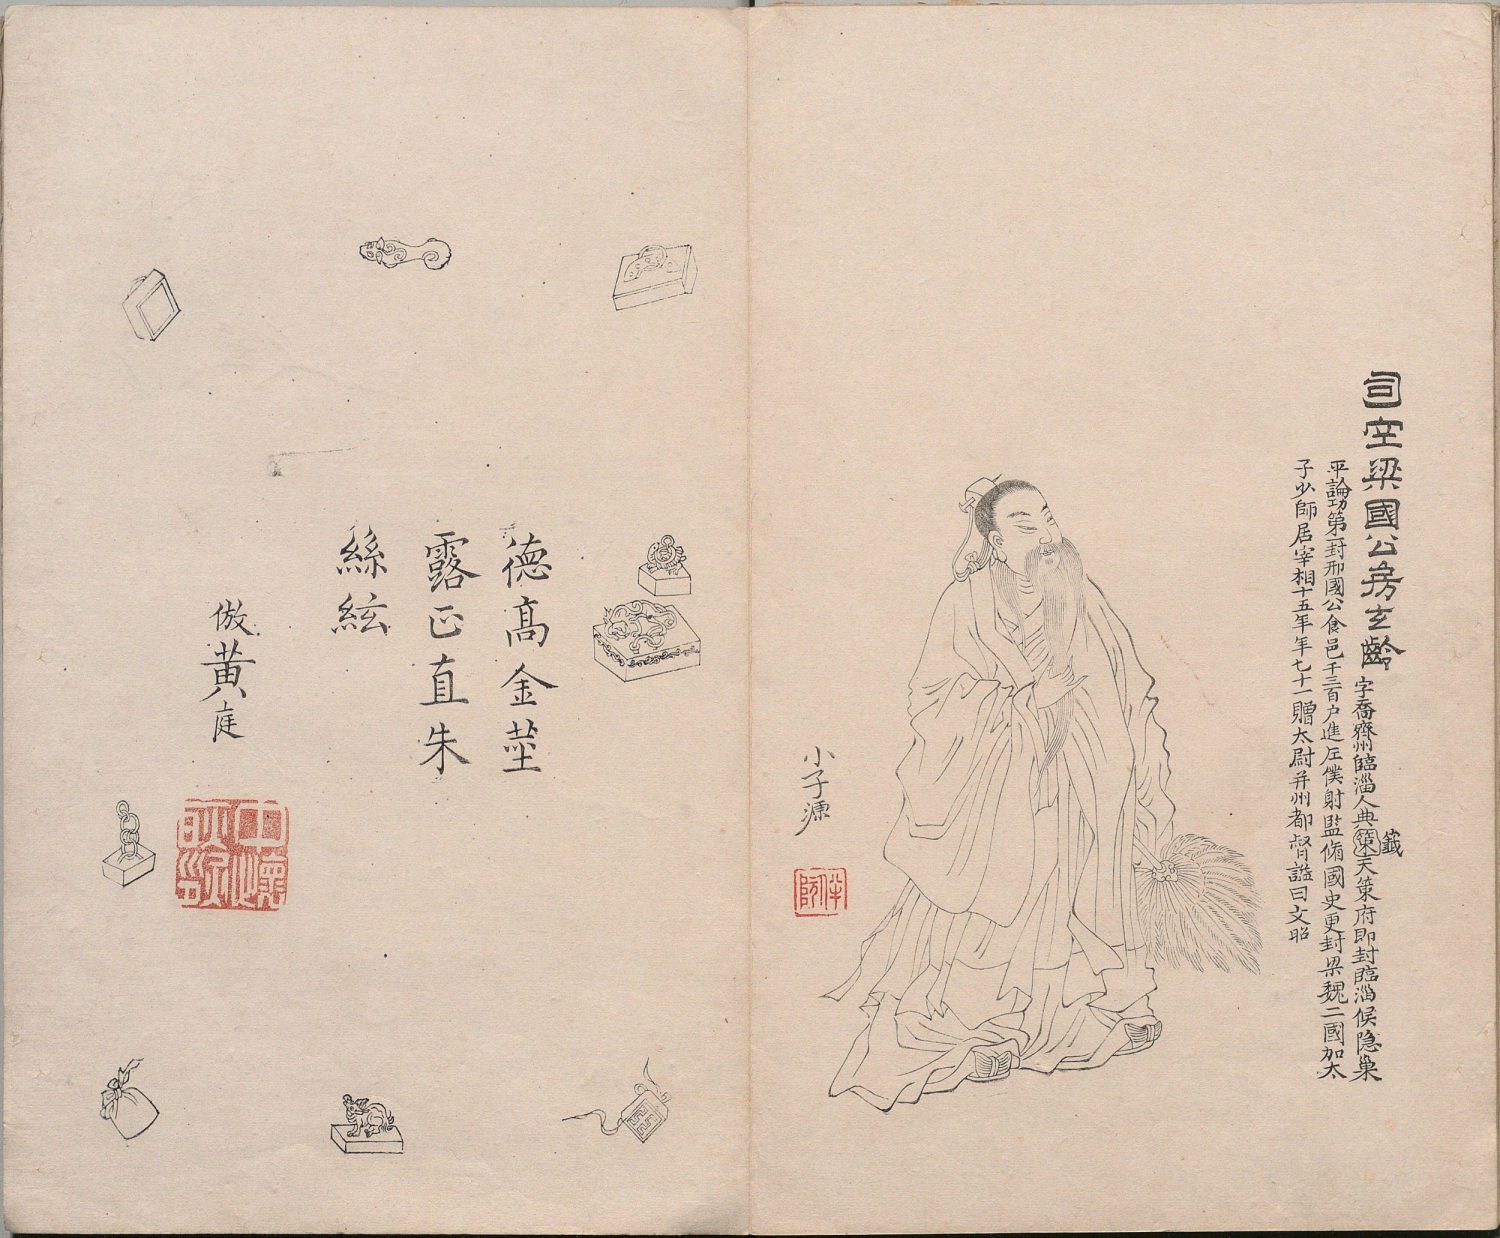 司空梁國公房玄齡
字喬齊州臨淄人典籤策天策府即封臨淄侯隐巢
平論功第一封邢國公食邑千三百户進左僕射監脩國史更封梁魏二國加太
子少師居宰相十五年年七十一贈太尉并州都督謚曰文昭
小子源
德高金莖
露正直朱
絲絃
倣黄庭